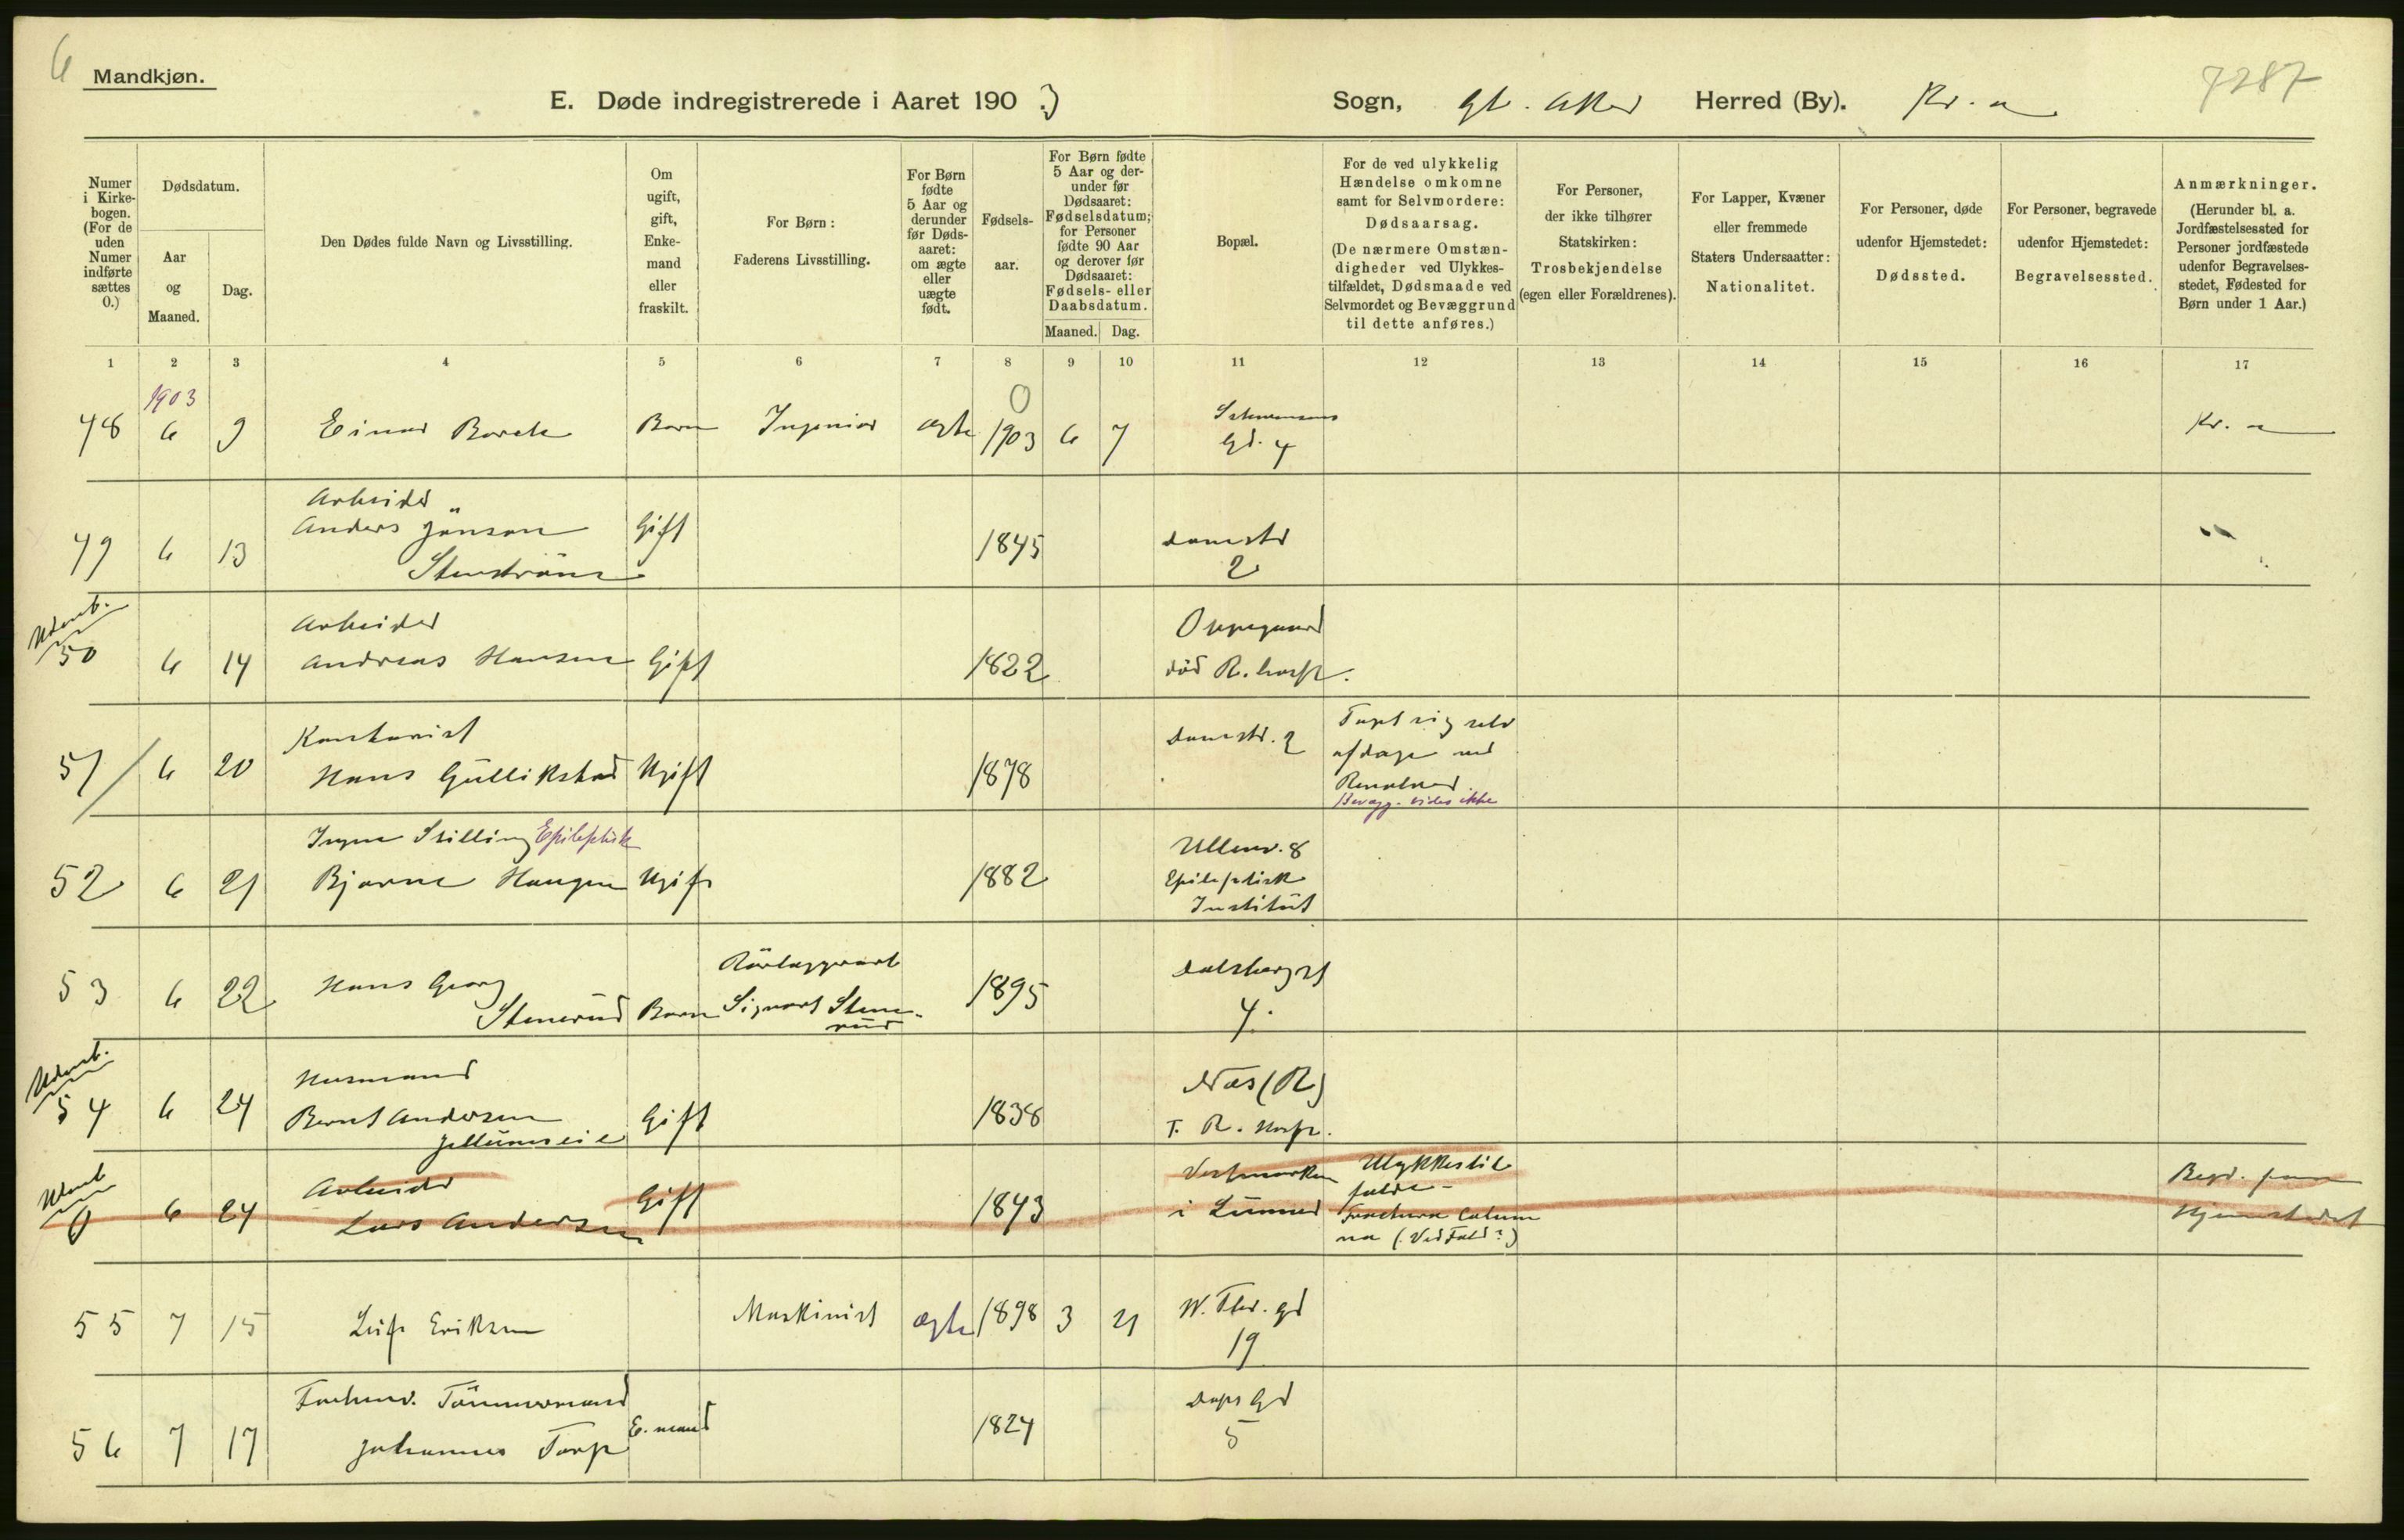 6
Mandkjøn.
E. Døde indregistrerede i Aaret 1903
Sogn, Gl. Aker Herred (By). Kr.a
7287
Numer i Kirkebogen. (For de uden Numer indførte sættes 0.)
Dødsdatum.
Aar og Maaned.
Dag.
Den Dødes fulde Navn og Livsstilling.
Om ugift, gift, Enkemand eller fraskilt.
For Børn: Faderens Livsstilling.
For Børn fødte 5 Aar og derunder før Dødsaaret: om ægte eller uægte født.
Fødselsaar.
For Børn fødte 5 Aar og derunder før Dødsaaret: Fødselsdatum; for Personer fødte 90 Aar og derover før Dødsaaret: Fødsels- eller Daabsdatum.
Maaned. Dag.
Bopæl.
For de ved ulykkelig Hændelse omkomne samt for Selvmordere: Dødsaarsag. (De nærmere Omstændigheder ved Ulykkestilfældet, Dødsmaade ved Selvmordet og Bevæggrund til dette anføres.)
For Personer, der ikke tilhører Statskirken: Trosbekjendelse (egen eller Forældrenes).
For Lapper, Kvæner eller fremmede Staters Undersaatter: Nationalitet.
For Personer, døde udenfor Hjemstedet: Dødssted.
For Personer, begravede udenfor Hjemstedet: Begravelsessted.
Anmærkninger. (Herunder bl. a. Jordfæstelsessted for Personer jordfæstede udenfor Begravelsesstedet, Fødested for Børn under 1 Aar.)
1 2 3 4 5 6 7 8 9 10 11 12 13 14 15 16 17
1903 0
48 6 9 Einar Borch Barn Ingeniør ægte 1903 6 7 Gd. 4 Kr.a
Arbeider
49 6 13 Anders Jönson Gift 1845 Damstr 2 "
Stenström
Udenb.
Arbeider Oppegaard
50 6 14 Andreas Hansen Gift 1822 död R. hosp.
Kontorist
51 6 20 Hans Gullikstad Ugift 1878 Damstr. 2 Taget sig selv
afdage med
Revolver
Bevægg. vides ikke
Ingen Stilling Epileptisk
52 6 21 Bjarne Haugen Ugift 1882 Ullev. 8
Epileptisk
Institut
Rörlæggerarb
53 6 22 Hans Georg 1895 Dalsbergst
Stenerud Barn Sigvart Stenerud 4.
Udenb.
Husmand Næs (R)
54 6 24 Bernt Andersen Gift 1838 T. R. Hosp.
Udenb
Arbeider Vestmarken Ulykkestilfælde -
0 6 24 Lars Andersen Gift 1843 i Lunner Fractura Columna (Ved Fald?) Begr. paa
Hjemstedet
55 7 15 Leif Eriksen Maskinist ægte 1898 3 21 W. Thr. gd
19
Forhenv. Tömmermand
56 7 17 Johannes Torp E.mand 1824 Daps Gd
5